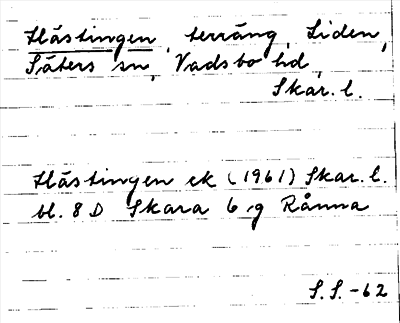 Hästingen, terräng, Liden,
Säters sn, Vadsbo hd,
Skar. l.
Hästingen ek (1961) Skar. l.
bl. 8 D Skara 6 g Rånna
S.S. -62